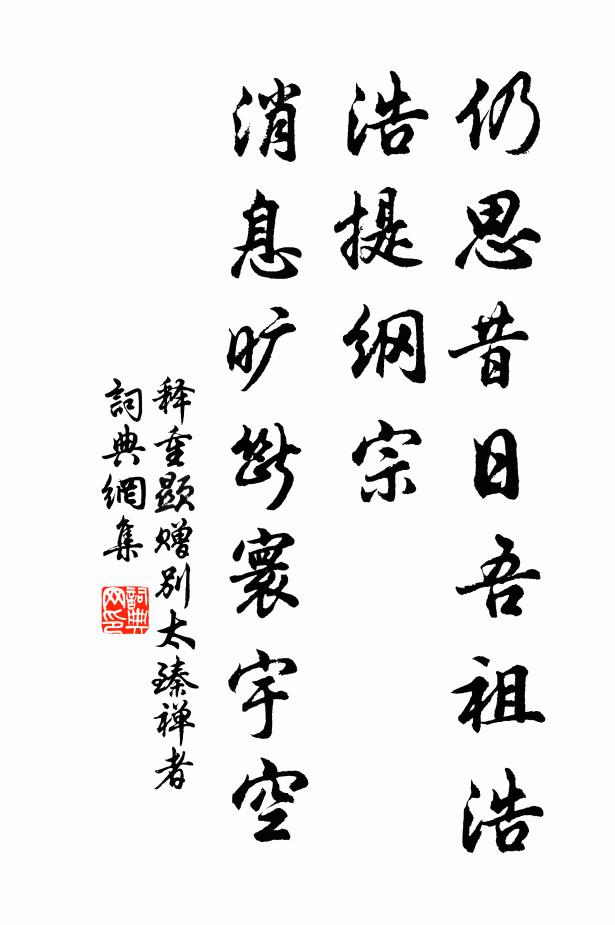 仍思昔日吾祖浩
浩提纲宗
消息旷断寰宇空
释重显赠别太臻禅者
詞典網集
詞典网印